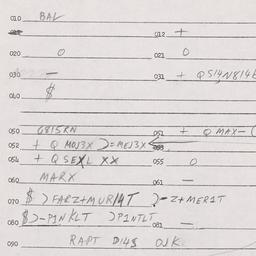 010 BAL
012 +
020 0 021 0
030 — 031 + Q514N814
040 $
050 G815RN 051 + QMAX-(
052 + Q M0J3X )= MEJ3X
054 + Q SEXL XX 055 0
060 MARX 061 —
070 $ ) FARZ+MUR14T )-Z+MER1T
080 $)-P1NKLT )P1NTLT 081 —
090 RAPT D14$ OJK